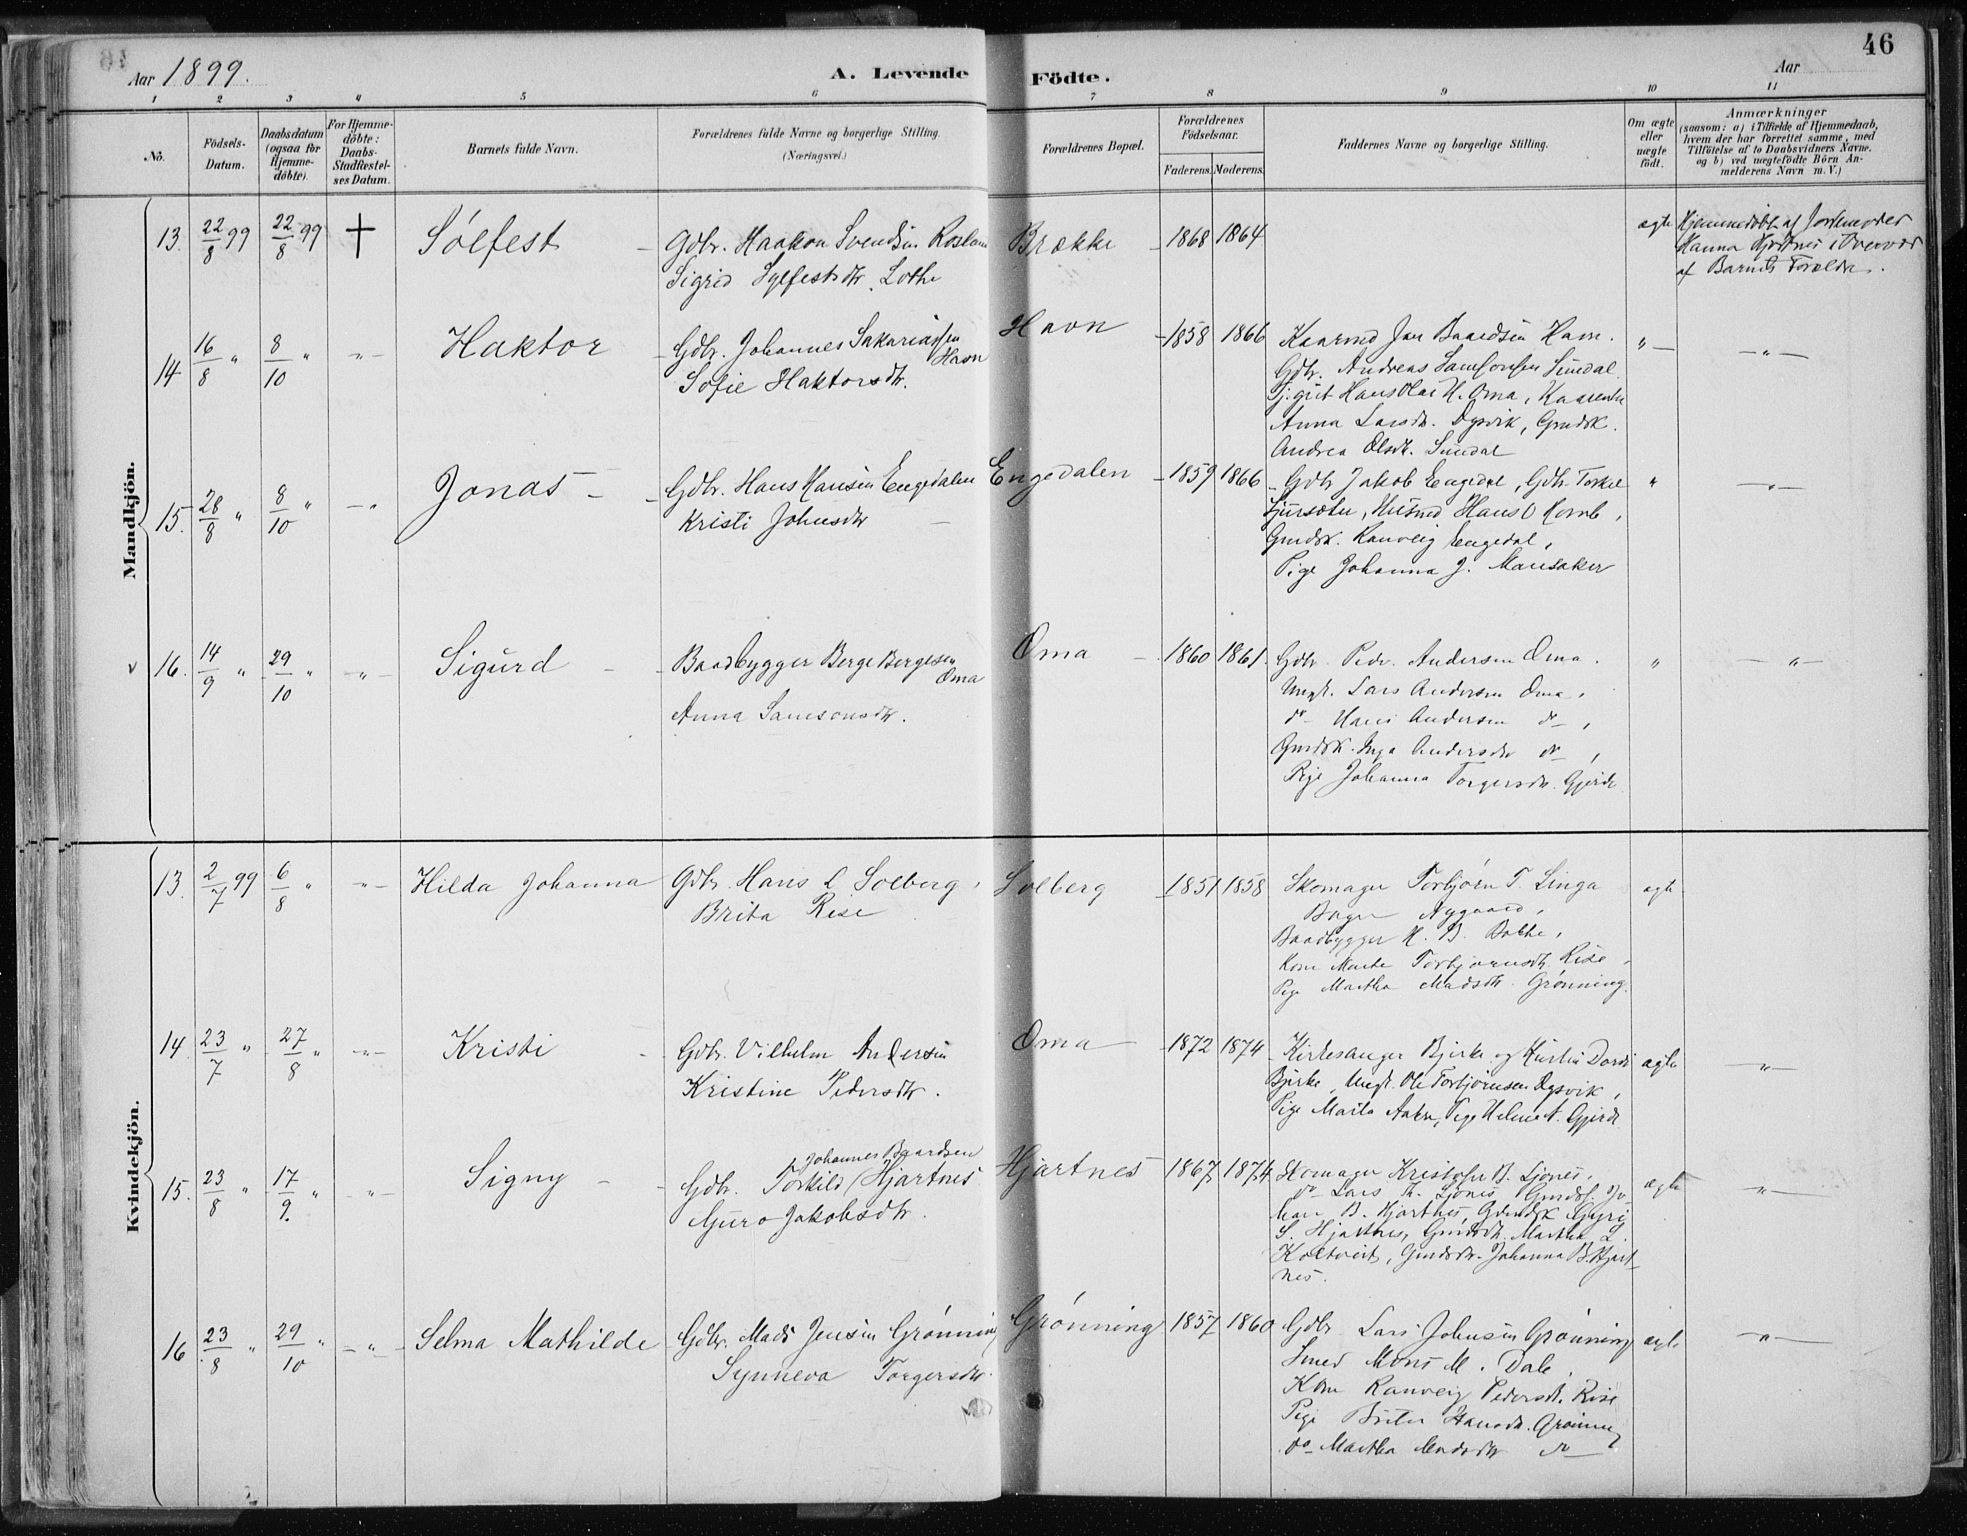 Aar 1899.
A. Levende Födte.
Aar
46
1 2 3 4 5 6 7 8 9 10 11
Nô.
Födsels-Datum.
Daabsdatum (ogsaa for Hjemme-döbte).
For Hjemme-döbte: Daabs-Stadfæstel-ses Datum.
Barnets fulde Navn.
Forældrenes fulde Navne og borgerlige Stilling.
(Næringsvei.)
Forældrenes Bopæl.
Forældrenes Födselsaar.
Faderens. Moderens.
Faddernes Navne og borgerlige Stilling.
Om ægte eller uægte födt.
Anmærkninger
(saasom: a) i Tilfælde af Hjemmedaab, hvem der har forrettet samme, med Tilföielse af to Daabsvidners Navne. og b) ved uægtefödte Börn An-melderens Navn m. V.)
Mandkjön.
13. 22/8 99 22/8 99 † Sólfest Gdbr. Haakon Svendsen Brække 1868 1864 ægte Hjemmedöbt af Jordmoder
Sigrid Sylfestsdtr. Lothe Hanna Hjartnes i Overvær
af Barnets Forældre.
14 16/8 " 8/10 " " Haktor Gdbr. Johannes Sakariassen Havn Havn 1858 1866 Kaarmd Jan Baardsen Havn. " "
Sofie Haktorsdtr. Gdbr. Andreas Samsonsen Sundal
Hans Olai H. Oma, Kaarenke
Anna Larsdtr. Dysvik, Gmdsk.
Andrea Olsdtr. Sundal
15. 28/8 " 8/10 " " Jonas Gdbr. Hans Hansen Engedalen Engedalen 1859 1866 Gdbr Jakob Engedal, Gdbr. Torkel " "
Kristi Johnsdtr Husmd Hans O
Gmdsk. Ranveig Engedal,
Pige Johanna J. Mansaker
16. 14/9 " 29/10 " " Sigurd Baadbygger Berge Bergesen Oma Oma 1860 1861 Gdbr. Peder Andersen Oma. " "
Anna Samsonsdtr. Ungk. Lars Andersen Oma,
do Hans Andersen do,
Gmdsk. Inga Andersdtr do,
Pige Johanna Torgersdtr. Gjerde
Kvindekjön.
13. 2/7 99 6/8 " " Hilda Johanna Gdbr. Hans L Solberg, Solberg 1851 1858 Skomager Torbjörn T. Linga ægte
Brita Rise Nygaard,
Baadbygger H. B.
Kone Marta Torbjörnsdtr. Rise,
Pige Martha Madsdtr. Grónning.
14. 23/7 " 27/8 " " Kristi Gdbr. Vilhelm Andersen Oma 1872 1874 Kirkesanger Bjerke og Hustru Dordi ægte "
Kristine Pedersdtr. Bjerke, Ungk. Ole Torbjörnsen Dysvik,
Pige Marta Aaken, Pige Helene A. Gjerde
15. 23/8 " 17/9. " " Signy Gdbr. Torkild (Johannes Baardsen Hjartnes Hjartnes 1867 1874 Skomager Kristofer B. Sjones, ægte "
Guro Jakobsdtr. do Lars K. Sjones
B. Hjartnes, Gmdsk
S. Hjartnes, Gmdsdtr. Martha L.
Koltveit, Gmdsdtr. Johanna B. Hjart-
nes.
16 23/8 " 29/10 " " Selma Mathilde Gdbr. Mads Jensen Grónning Grónning 1857 1860 Gdbr Lars Johnsen Grónning ægte "
Synneva Torgersdtr. Smed Mons M. Dale,
Kone Ranveig Pedersdt. Rise
Pige Brita Hansdtr. Grónning
do Martha do